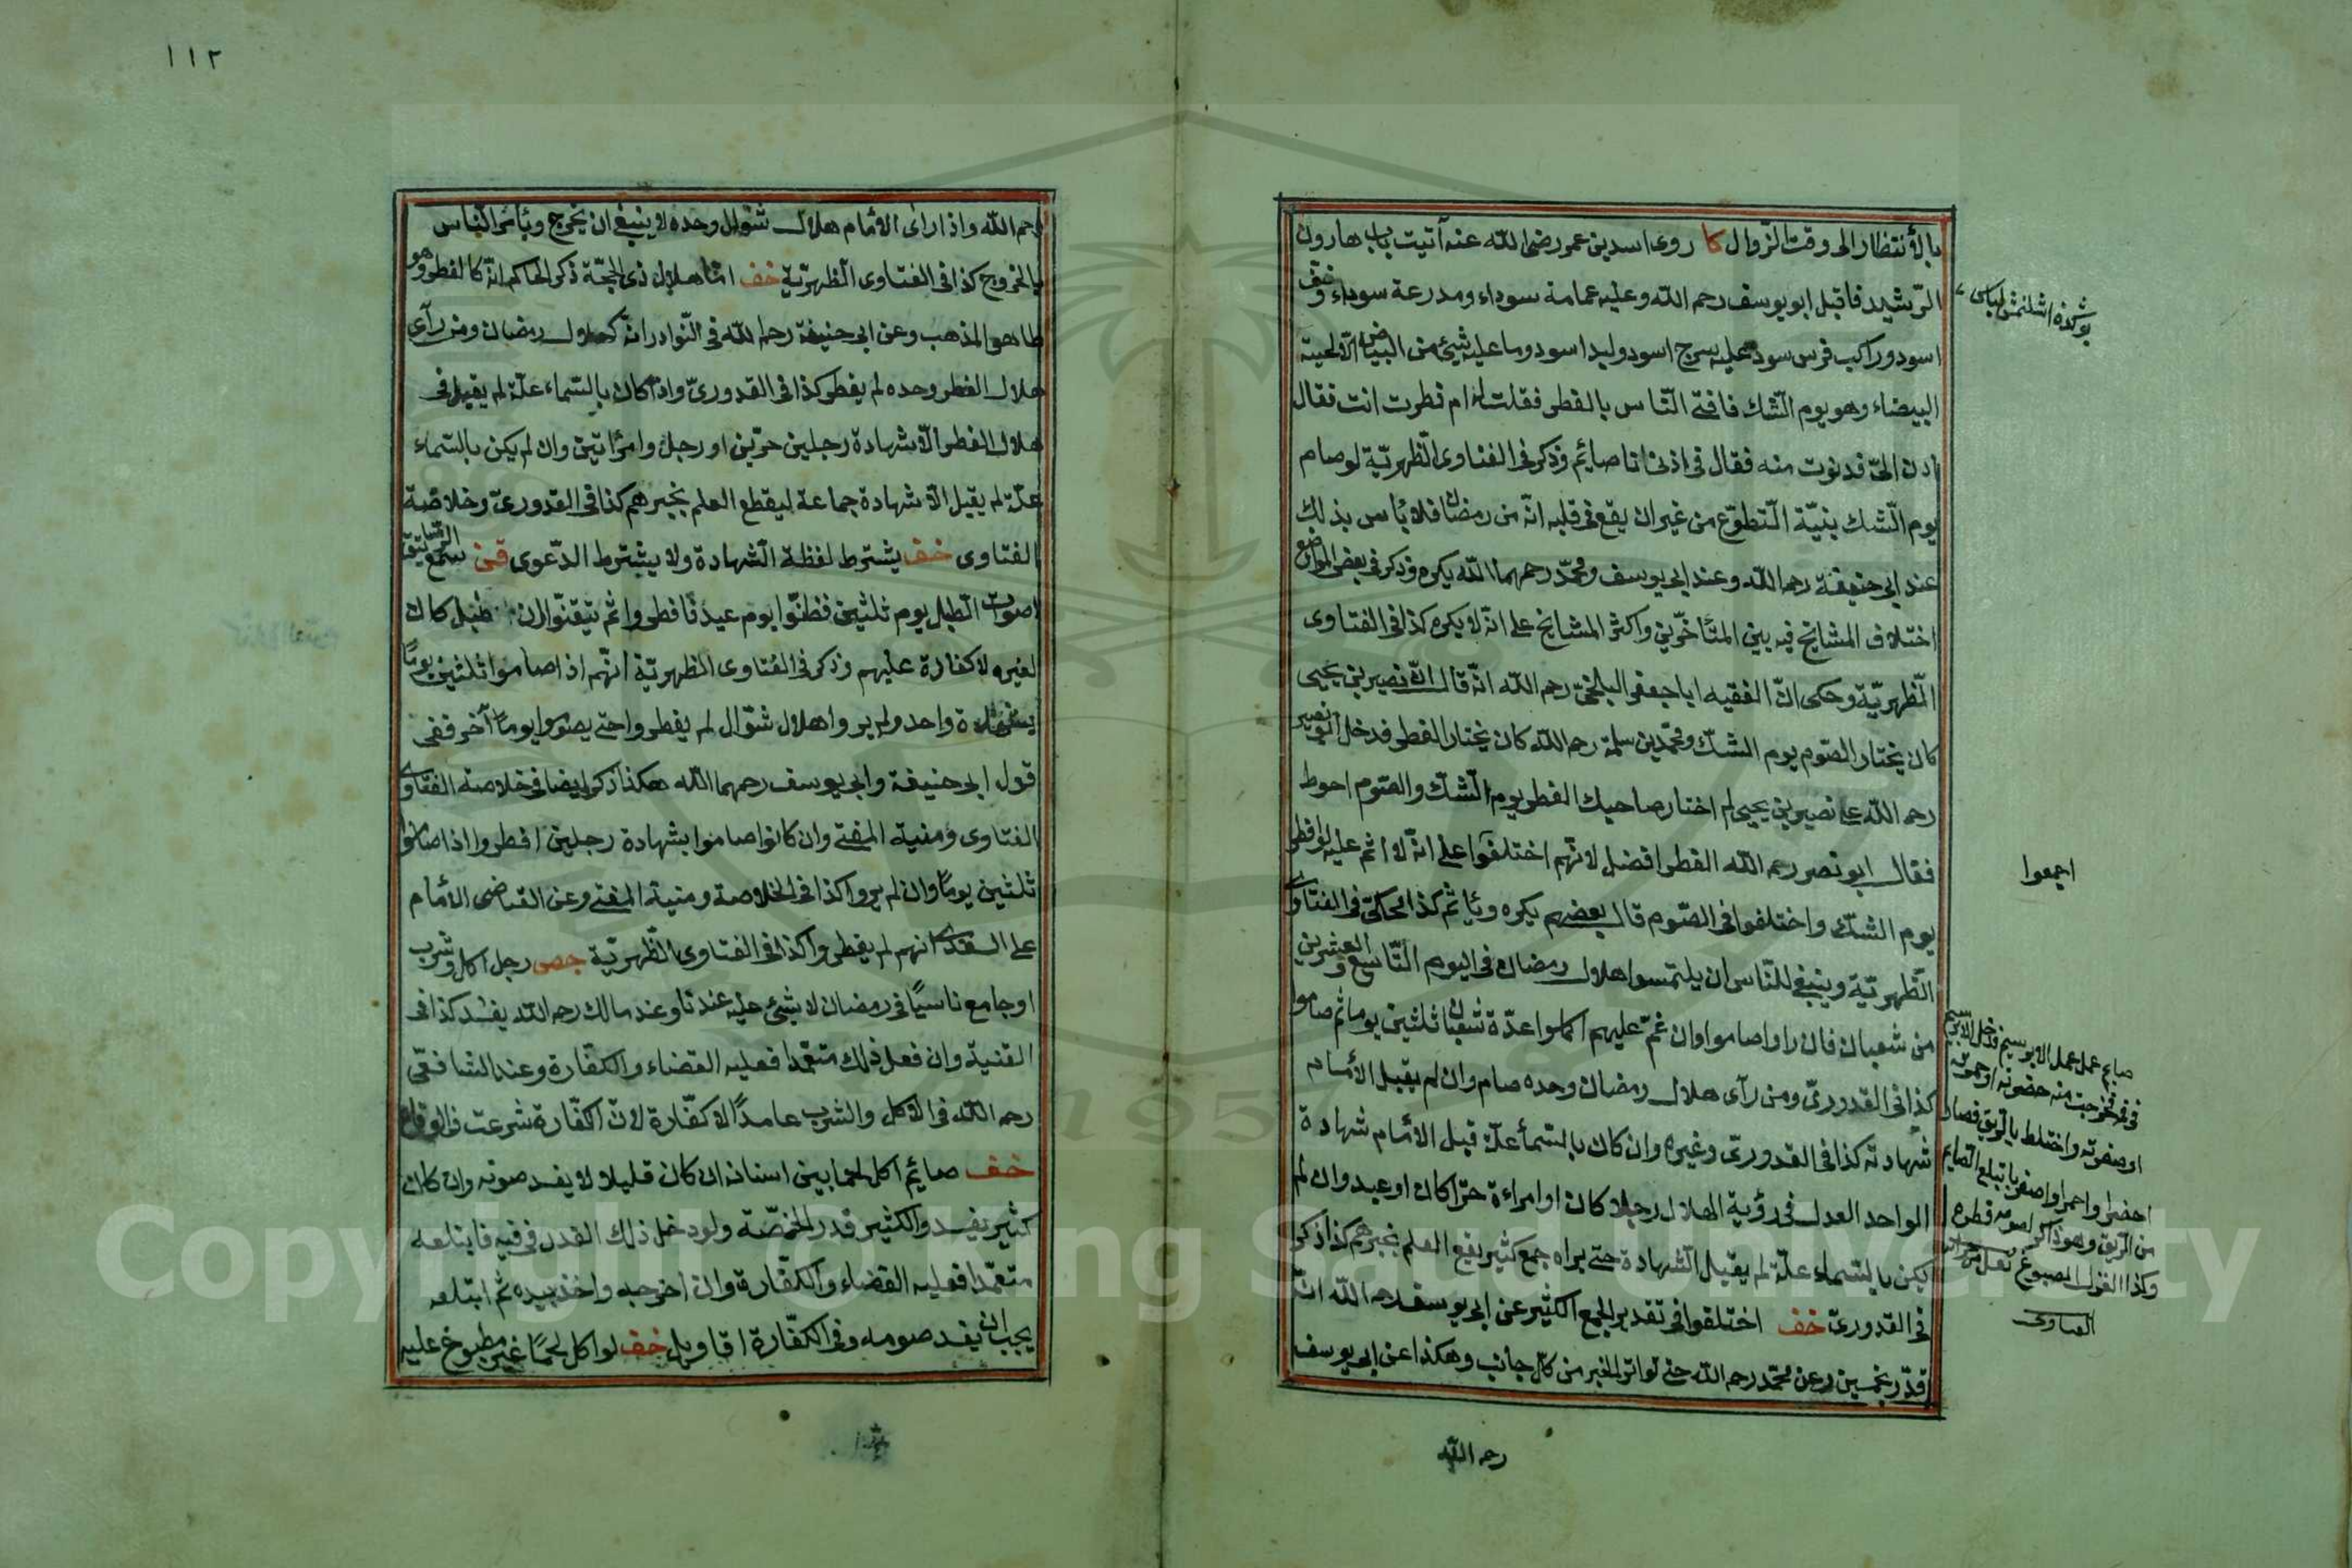 ١١٢
بالأنتظار الى وقت الزّوال كا روى اسد بن عمر رضى الله عنه آتيت باب هارون
الرّشيد فاقبل ابو يوسف رحم الله وعليه عمامة سوداء ومدرعة سوداء وخفّ
اسود وراكب فرس سود عليه سرج اسود وليد اسود وما عليه شئ من البياض الّا لحية
البيضاء وهو يوم الشك فافتى النّاس بالفطر فقلت له ام فطرت انت فقال
ادن الىّ فدنوت منه فقال فى اذنى انا صائم وذكر فى الفتاوى الظهريّة لو صام
يوم الشّك بنيّة التطوّع من غير ان يقع فى قلبه انّه من رمضان فلا بأس بذلك
عند ابى حنيفة رحم الله وعند ابى يوسف ومحمّد رحمهما الله يكره وذكر فى بعض المواضع
اختلاف المشايخ فيه بين المتأخّرين واكثر المشايخ على انّه لا يكره كذا فى الفتاوى
الظهريّة وحكى انّ الفقيه ابا جعفر البلخىّ رحم الله انّه قال انّ نصير بن يحيى
كان يختار الصّوم يوم الشّك ومحمّد بن سلمة رحم الله كان يختار الفطر فدخل ابو نصير
رحم الله على نصير بن يحيى لم اختار صاحبك الفطر يوم الشّك والصّوم احوط
فقال ابو نصر رحم الله الفطر افضل لانّهم اختلفوا على انّه لا اثم عليه لو افطر
يوم الشّك واختلفوا فى الصّوم قال بعضهم يكره ويأثم كذا محكىّ فى الفتاوى
الظّهريّة وينبغى للنّاس ان يلتمسوا هلال رمضان فى اليوم التّاسع والعشرين
من شعبان فان راوا صاموا وان غمّ عليهم اكملوا عدّة شعبان ثلثين يوما ثم صاموا
كذا فى القدورىّ ومن رآى هلال رمضان وحده صام وان لم يقبل الأمام
شهادته كذا فى القدورىّ وغيره وان كان بالسّمأ علّة قبل الأمام شهادة
الواحد العدل فى رؤية الهلال رجلا كان او امراءة حرّا كان او عبد وان لم
يكن بالسّماء علّة لم يقبل الشّهادة حتى يراه جمع كثير يقع العلم بخبرهم كذا ذكر
فى القدورىّ خف اختلفوا فى تقدير الجمع الكثير عن ابى يوسف رحم الله انّه
قدّر بخمسين وعن محمّد رحم الله حتى تواتر الخبر من كلّ جانب وهكذا عن ابى يوسف
رحم الله
اجمعوا
صايم عمل عمل الابريسم فدخل الابريسم
فى فمه فخرجت منه خضرته او حمرته
او صفرته واختلط بالريق فصار
اخضر او احمر او اصفر بابتلع الصايم
من الريق وهو ذاكر لصومه فطره
رحم الله واذا راى الأمام هلال شوّال وحده لا ينبغى ان يخرج ويأمر النّاس
بالخروج كذا فى الفتاوى الظهريّة خف امّا هلال ذى الحجّة ذكر الحاكم انّه كالفطر وهو
ظاهر المذهب وعن ابى حنيفة رحم الله فى النّوادر انّه كهلال رمضان ومن رآى
هلال الفطر وحده لم يفطر كذا فى القدورىّ واذا كان بالسّماء علّة لم يقبل فى
هلال الفطر الّا شهادة رجلين حرّين او رجل وامرأتين وان لم يكن بالسّماء
علّة لم يقبل الّا شهادة جماعة ليقطع العلم بخبرهم كذا فى القدورىّ وخلاصة
الفتاوى خف يشترط لفظة الشهادة ولا يشترط الدّعوى قن سمع
اصوات الطبل يوم ثلثين فظنّوا يوم عيد فافطروا ثم تيقّنوا ان طبل كان
لغيره لا كفارة عليهم وذكر فى الفتاوى الظهريّة انّهم اذا صاموا ثلثين يومًا
بشهادة واحد ولم يروا هلال شوّال لم يفطروا حتى يصوموا يوما آخر ففى
قول ابى حنيفة وابى يوسف رحمهما الله هكذا ذكر ايضا فى خلاصة الفتاوى
الفتاوى ومنية المفتى وان كانوا صاموا بشهادة رجلين افطروا اذا صاموا
ثلثين يومًا وان لم يروا كذا فى الخلاصة ومنية المفتى وعن القاضى الأمام
على السغدى انهم لم يفطروا كذا فى الفتاوى الظّهريّة جص رجل اكل وشرب
او جامع ناسيًا فى رمضان لا شئ عليه عندنا وعند مالك رحم الله يفسد كذا فى
القنية وان فعل ذلك متعمّدا فعليه القضاء والكفّارة وعند الشافعّى
رحم الله فى الاكل والشرب عامدًا لا كفّارة لانّ الكفّارة شرعت فى الوقاع
خف صائم اكل لحما بين اسنانه ان كان قليلا لا يفسد صومه وان كان
كثير يفسد والكثير قدر الحمّصة ولو دخل ذلك القدر فى فيه فابتلعه
متعمّدا فعليه القضاء والكفّارة وان اخرجه واخذ بيده ثم ابتلعه
يجب ان يفسد صومه وفى الكفّارة اقاويل خف لو اكل لحمًا غير مطبوخ عليه
Copyright © King Saud University
1957